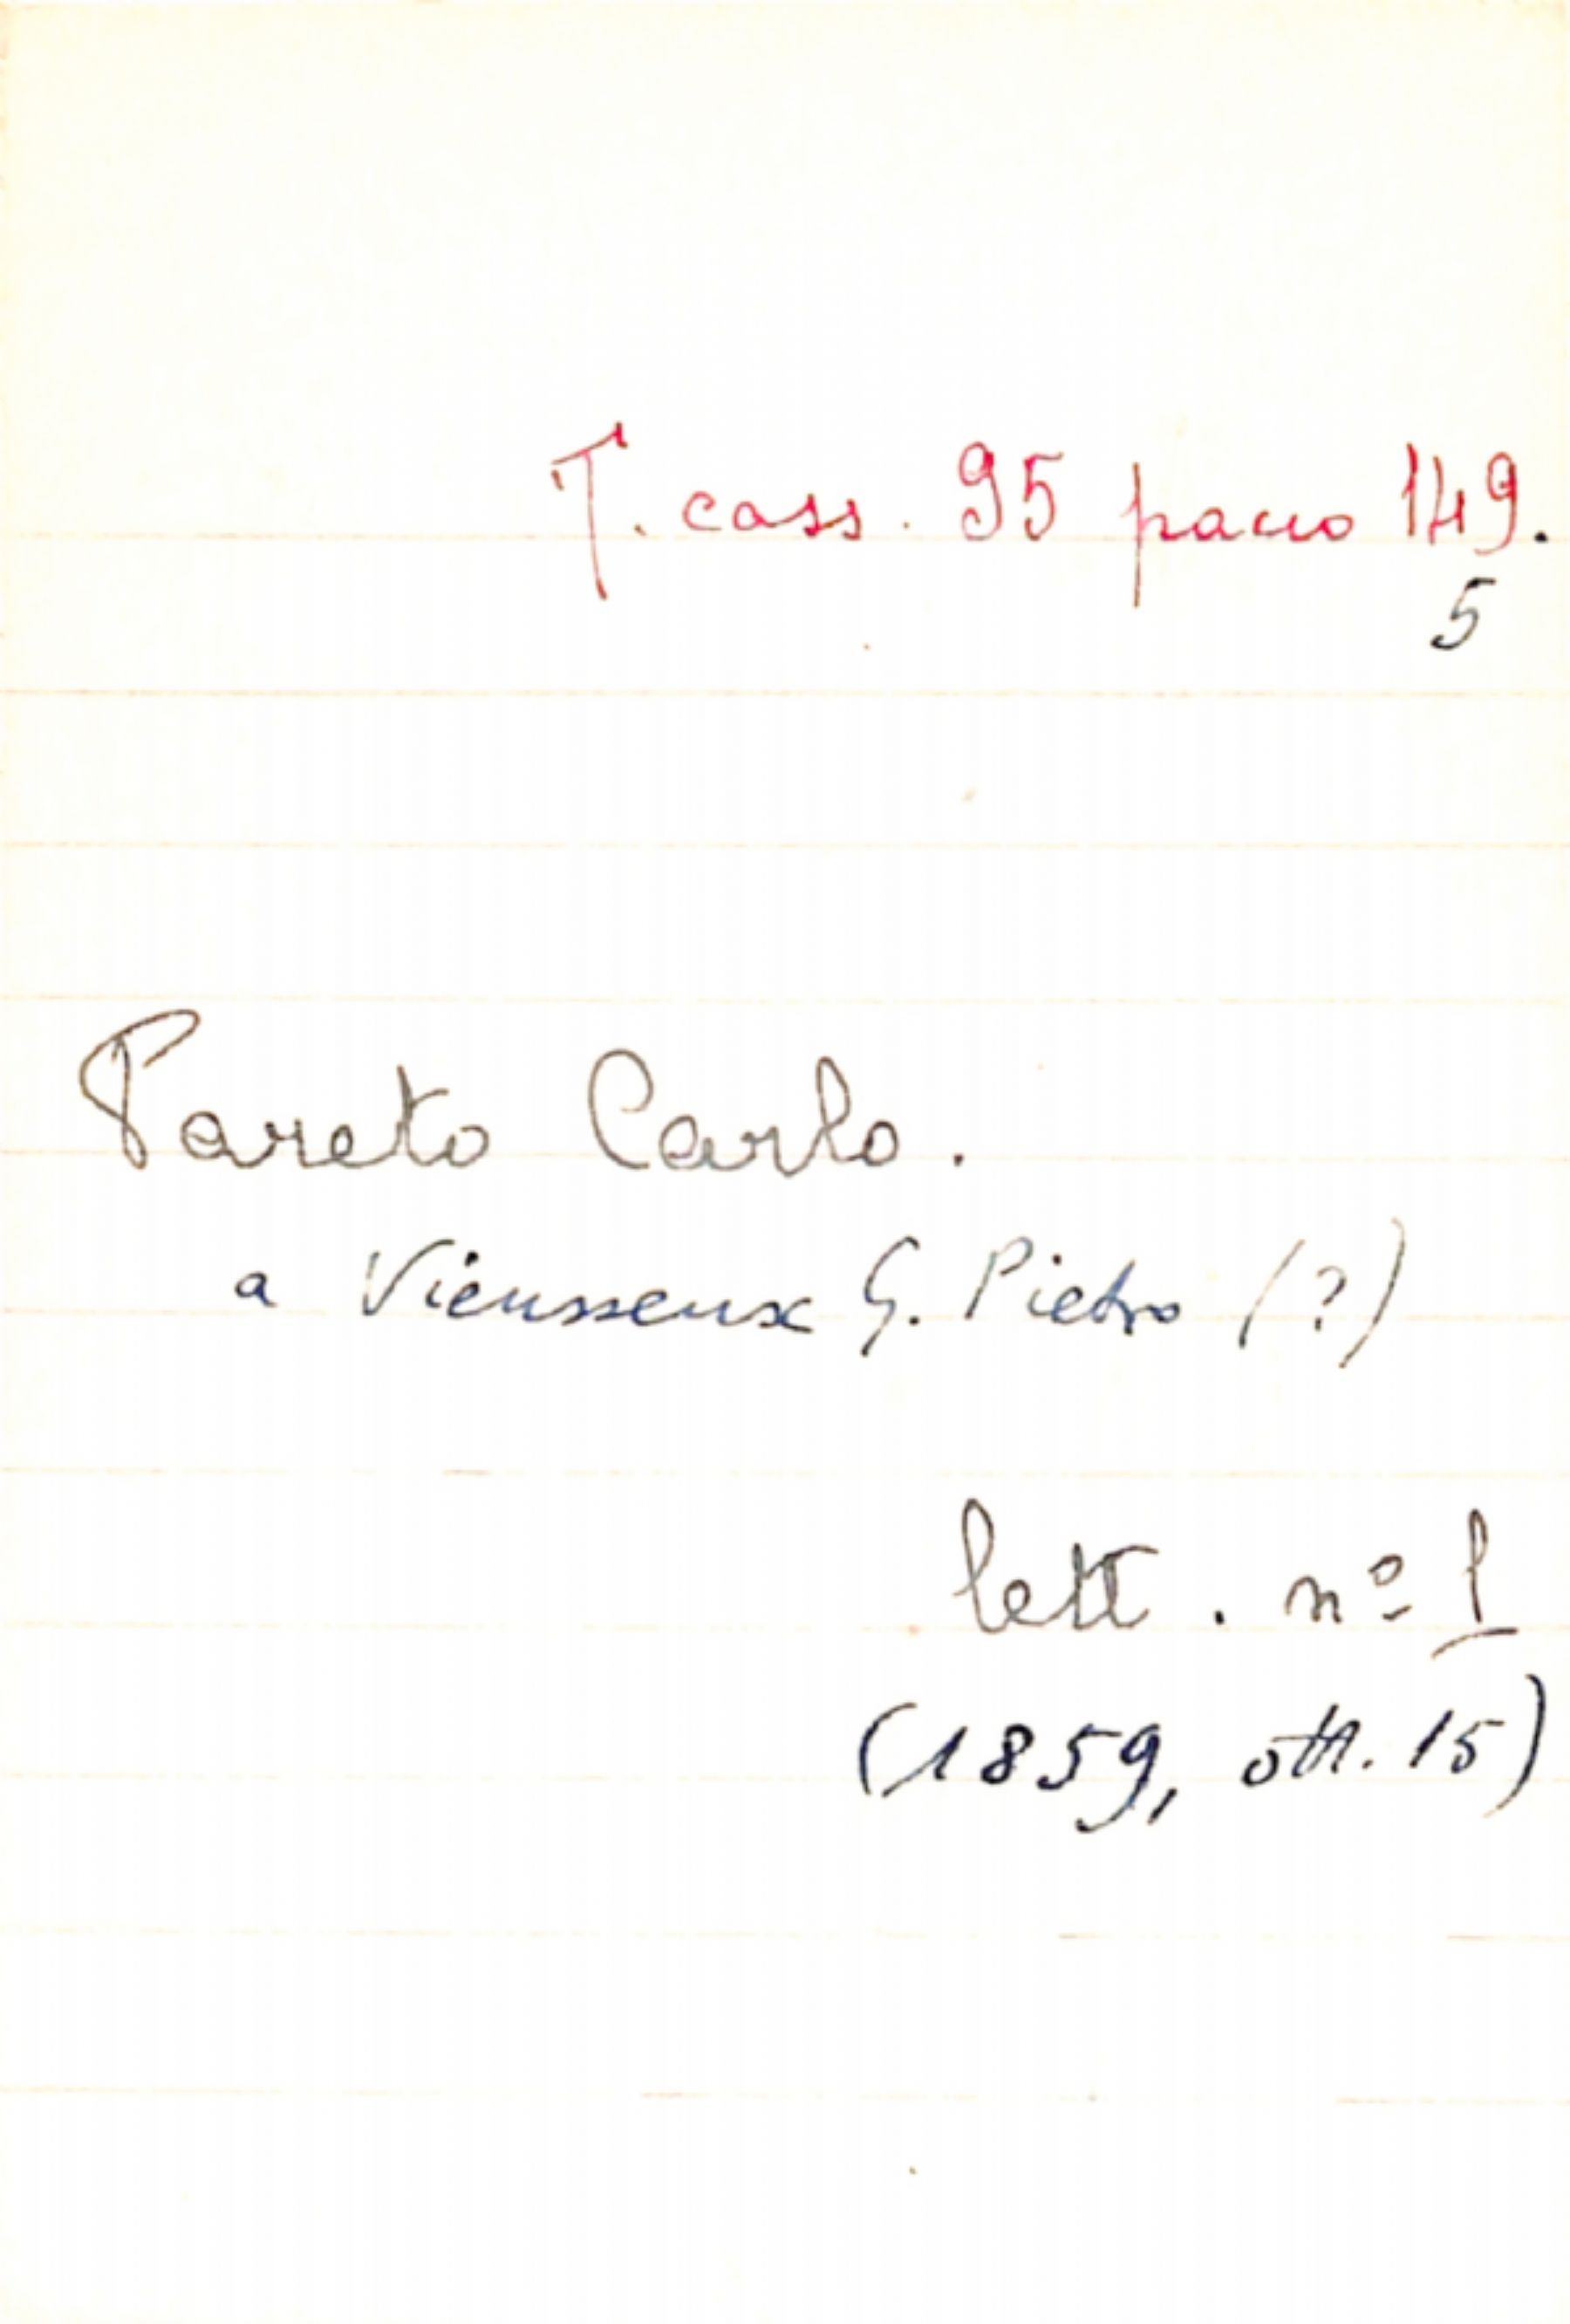 T. cass. 95 pacco 149.
5
Pareto Carlo.
a Vieusseux G. Pietro (?)
lett. nº 1
(1859, ott. 15)